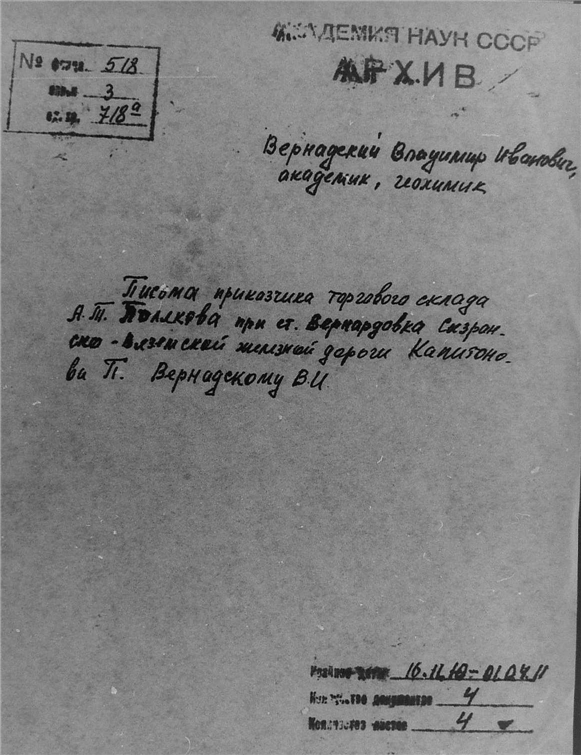 АКАДЕМИЯ НАУК СССР
АРХИВ
№ фонда 518
опись 3
ед. хр. 718а
Вернадский Владимир Иванович,
академик, геохимик
Письма приказчика торгового склада
А.Т. Полякова при ст. Вернардовка Сызран-
ско-Вяземской железной дороги Капитоно-
ва П. Вернадскому В.И
Крайние даты 16.11.10-01.04.11
Количество документов 4
Количество листов 4